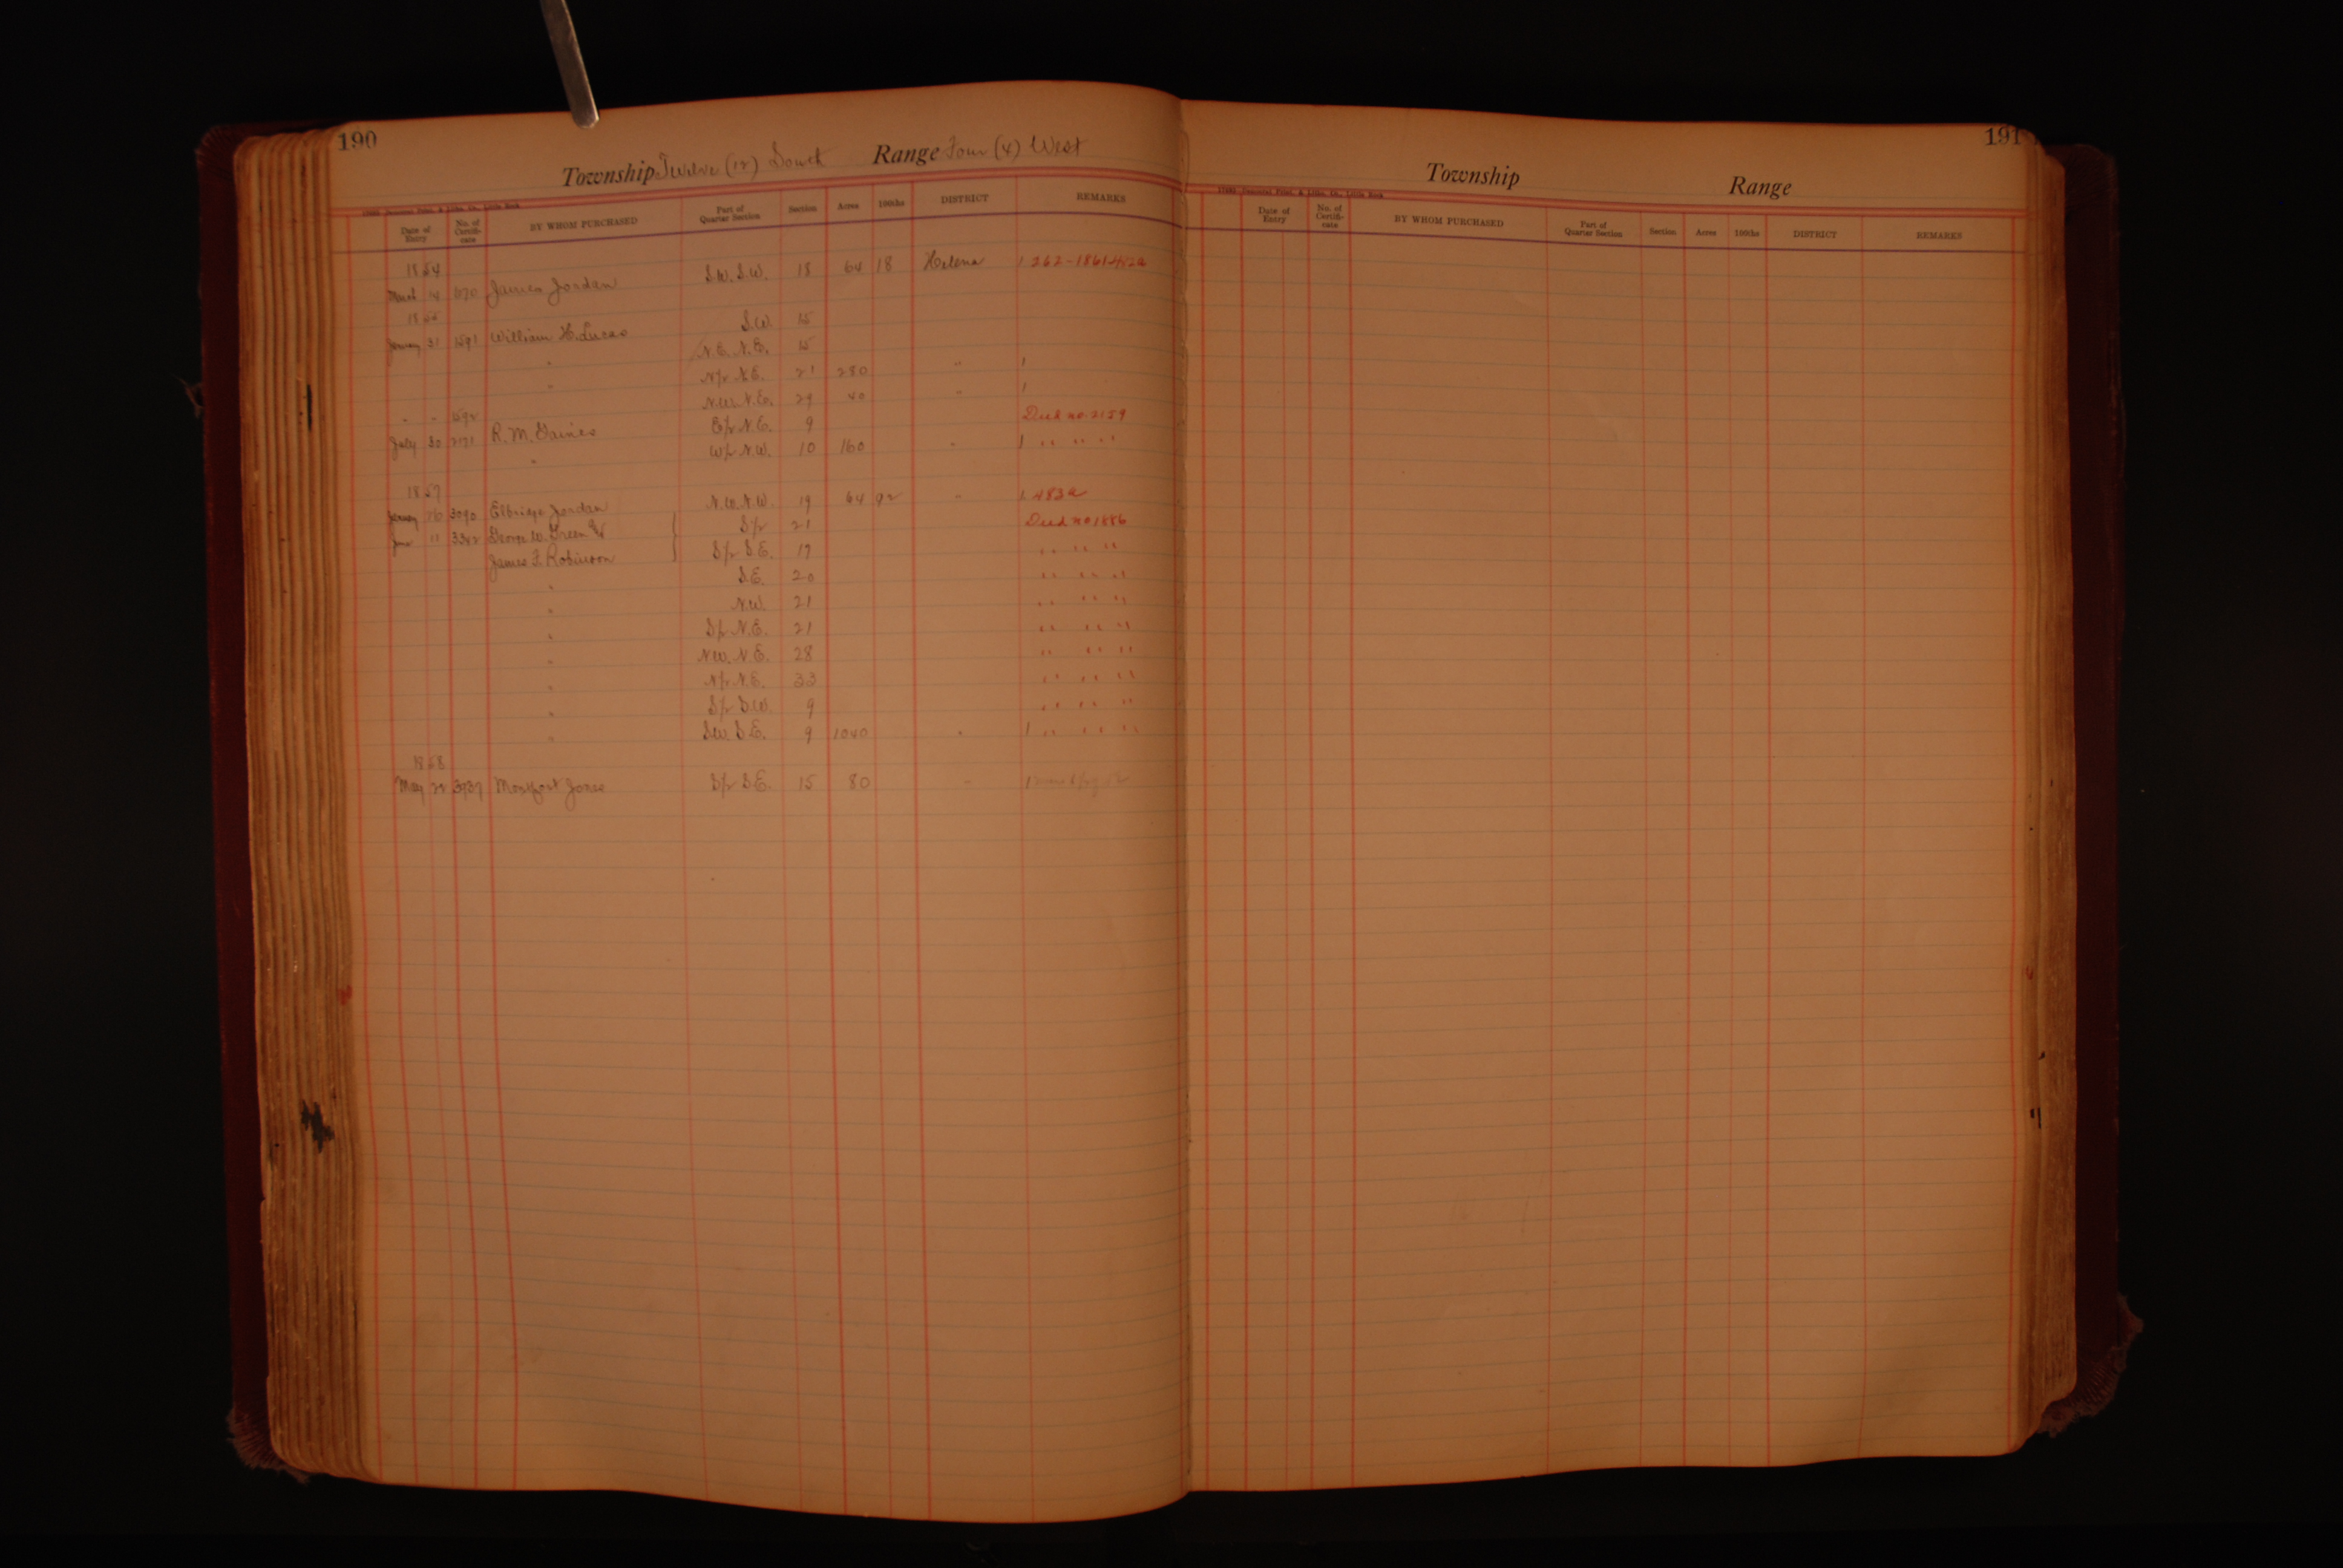 190
Township Twelve (12) South Range Four (4) West
Date of Entry No. of Certifi-cate BY WHOM PURCHASED Part of Quarter Section Section Acres 100ths DISTRICT REMARKS
1854
March 14 James Jordan S.W. S.W. 18 64 18 Helena 1
William H. Lucas S.W. 15
January 31 1591 " N.E. N.E. 15
" N/2 N.E. 21 280 " 1
" " 1592 N.W. N.E. 29 40 " 1
July 30 2171 R. M. Gaines E/2 N.E. 9 Deed no. 2159
" W/2 N.W. 10 160 " 1 " " "
1857
January 3090 Elbridge Jordan N.W. N.W. 19 64 92 " 1 483a
June 11 3342 George W. Green & S/2 21 Deed no 1886
James F. Robinson S/2 S.E. 17 " " "
" S.E. 20 " " "
" N.W. 21 " " "
" S/2 N.E. 21 " " "
" N.W. N.E. 28 " " "
" N/2 N.E. 33 " " "
" S/2 S.W. 9 " " "
" S.W. S.E. 9 1040 " 1 " " "
1858
May 22 3737 Montfort Jones S/2 S.E. 15 80 " 1
191
Township Range
Date of Entry No. of Certifi-cate BY WHOM PURCHASED Part of Quarter Section Section Acres 100ths DISTRICT REMARKS